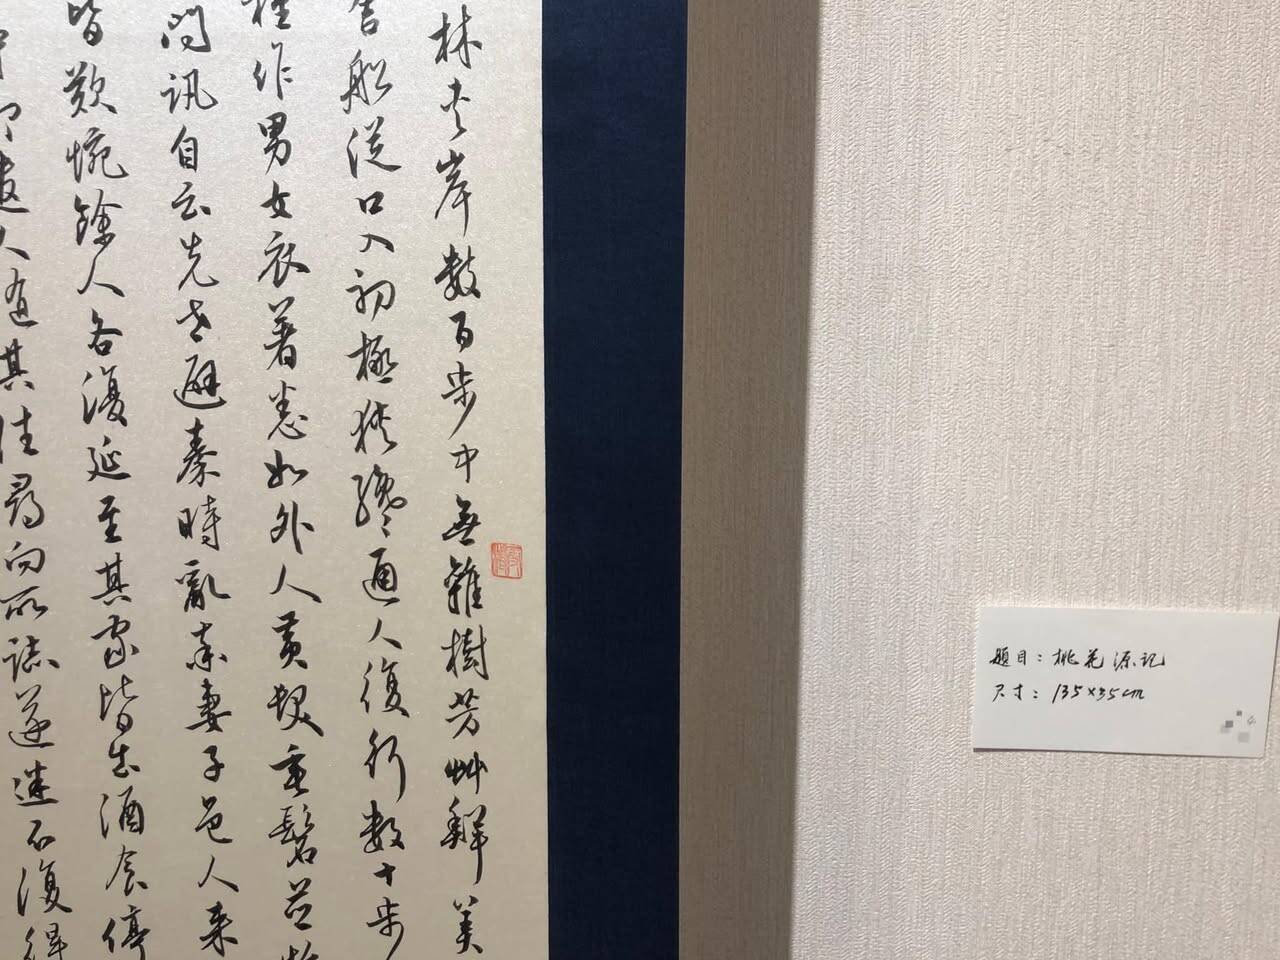 林夹岸數百步中無雜樹芳艸鮮美
舍船從口入初極狹纔通人復行數十步
種作男女衣著悉如外人黃髮垂髫並
問訊自云先世避秦時亂率妻子邑人来
皆歎惋餘人各復延至其家皆出酒食停
遣人随其往尋向所誌遂迷不復得
题目：桃花源记
尺寸：135×35cm